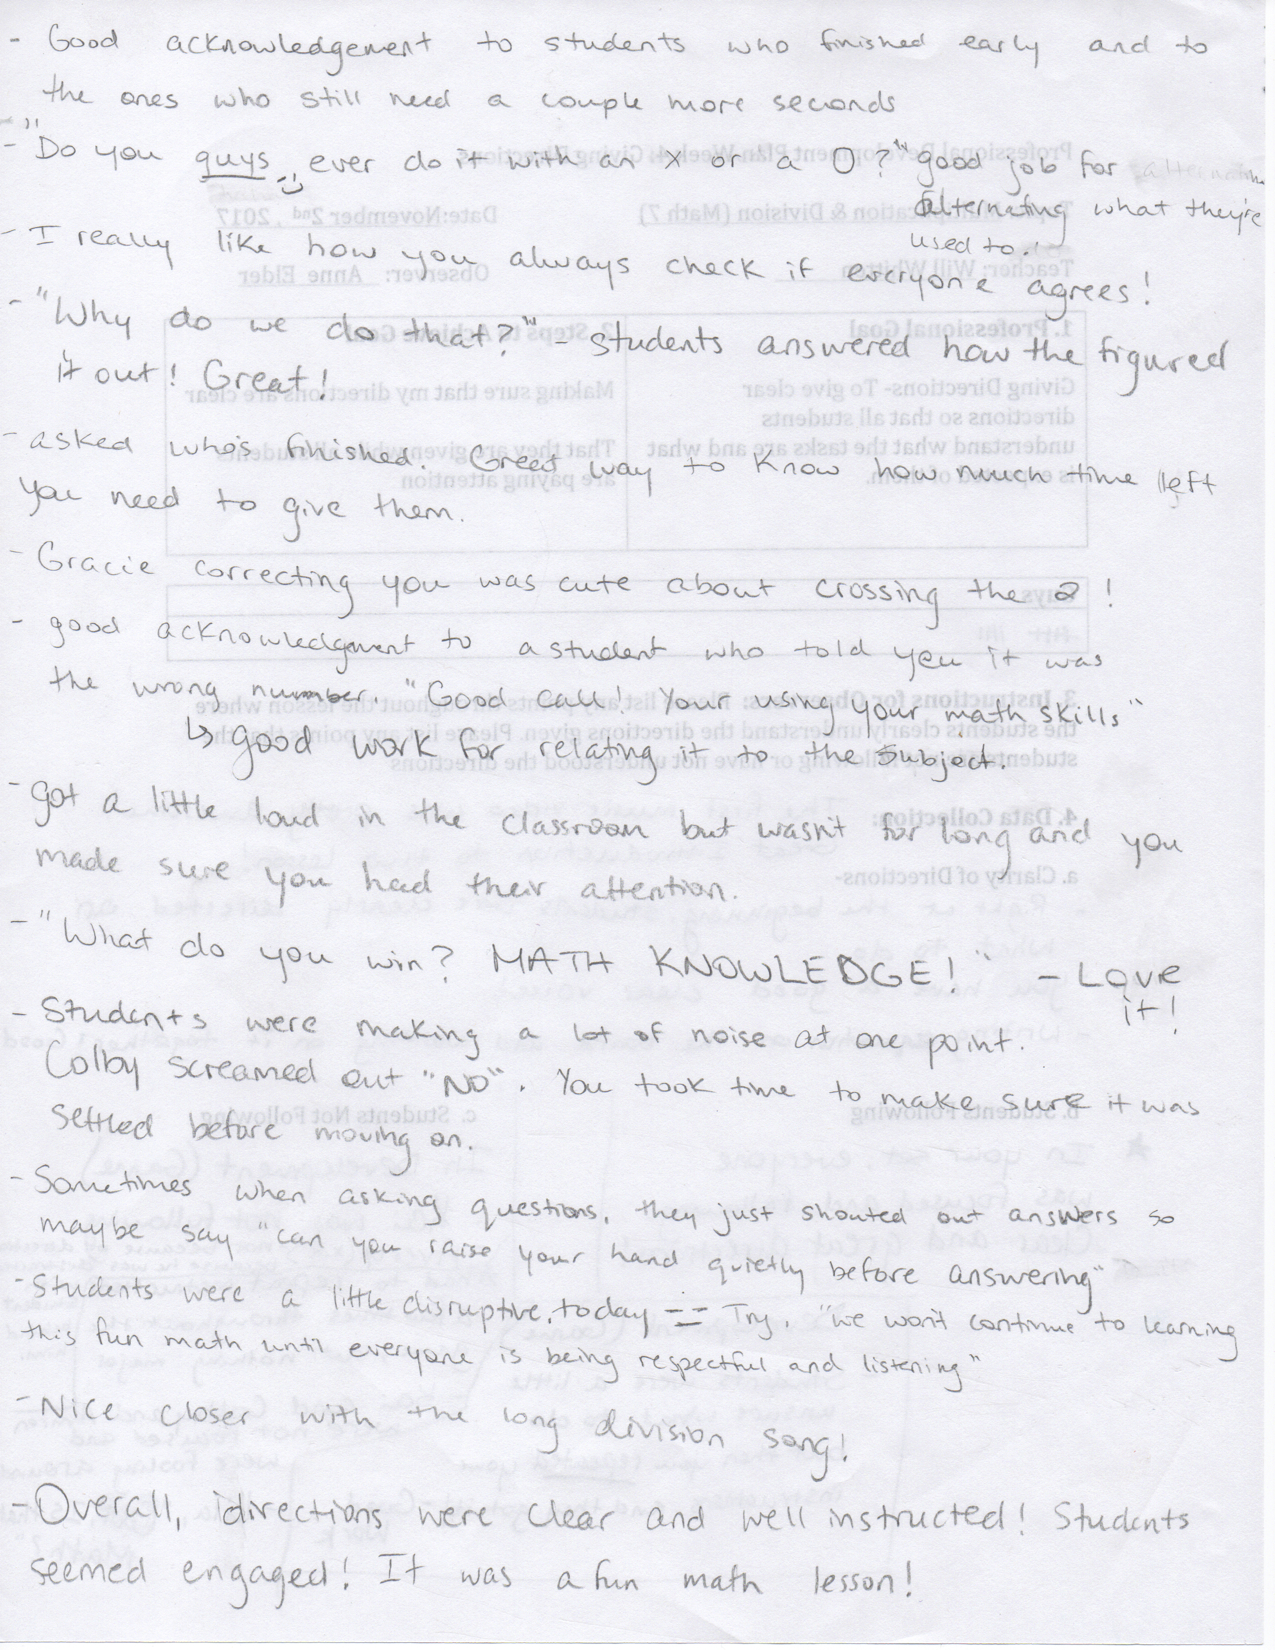 - Good acknowledgement to students who finished early and to
the ones who still need a couple more seconds
- "Do you guys ever do it with an X or a O?" good job for
alternating what they're
used to.
- I really like how you always check if everyone agrees!
- "Why do we do that?" - students answered how the figured
it out! Great!
- asked who's finished. Great way to know how much time left
you need to give them.
- Gracie correcting you was cute about crossing the 2!
- good acknowledgment to a student who told you it was
the wrong number. "Good call! Your using your math skills"
↳ good work for relating it to the subject.
- got a little loud in the classroom but wasn't for long and you
made sure you had their attention.
- "What do you win? MATH KNOWLEDGE!" - Love
it!
- Students were making a lot of noise at one point.
Colby screamed out "NO". You took time to make sure it was
settled before moving on.
- Sometimes when asking questions, they just shouted out answers so
maybe say "can you raise your hand quietly before answering"
- Students were a little disruptive today -- Try, "we won't continue to learning
this fun math until everyone is being respectful and listening"
- Nice closer with the long division song!
- Overall, directions were clear and well instructed! Students
seemed engaged! It was a fun math lesson!